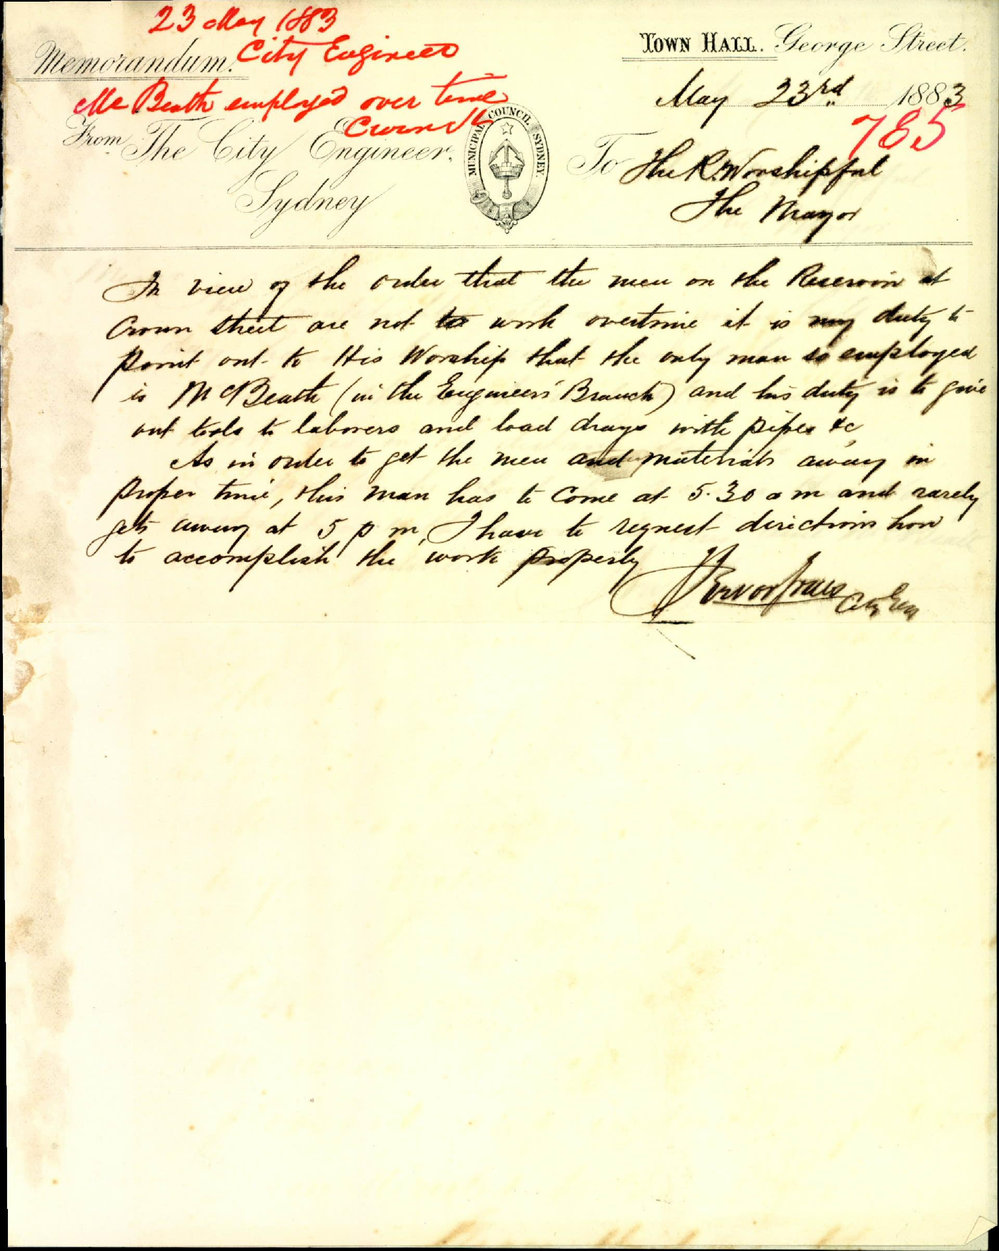 23 May 1883
City Engineer
McBeath employed over time
Crown St
Memorandum.
TOWN HALL. George Street.
May 23rd 1883
785
From The City Engineer.
Sydney
MUNICIPAL COUNCIL SYDNEY.
To The R. Worshipful
The Mayor
In view of the order that the men on the Reservoir at
Crown Street are not to work overtime it is my duty to
point out to His Worship that the only man so employed
is McBeath (in the Engineers' Branch) and his duty is to give
out tools to laborers and load drays with pipes &c,
As in order to get the men and materials away in
proper time, this man has to come at 5.30 a m and rarely
gets away at 5 p m, I have to request directions how
to accomplish the work properly
City Eng